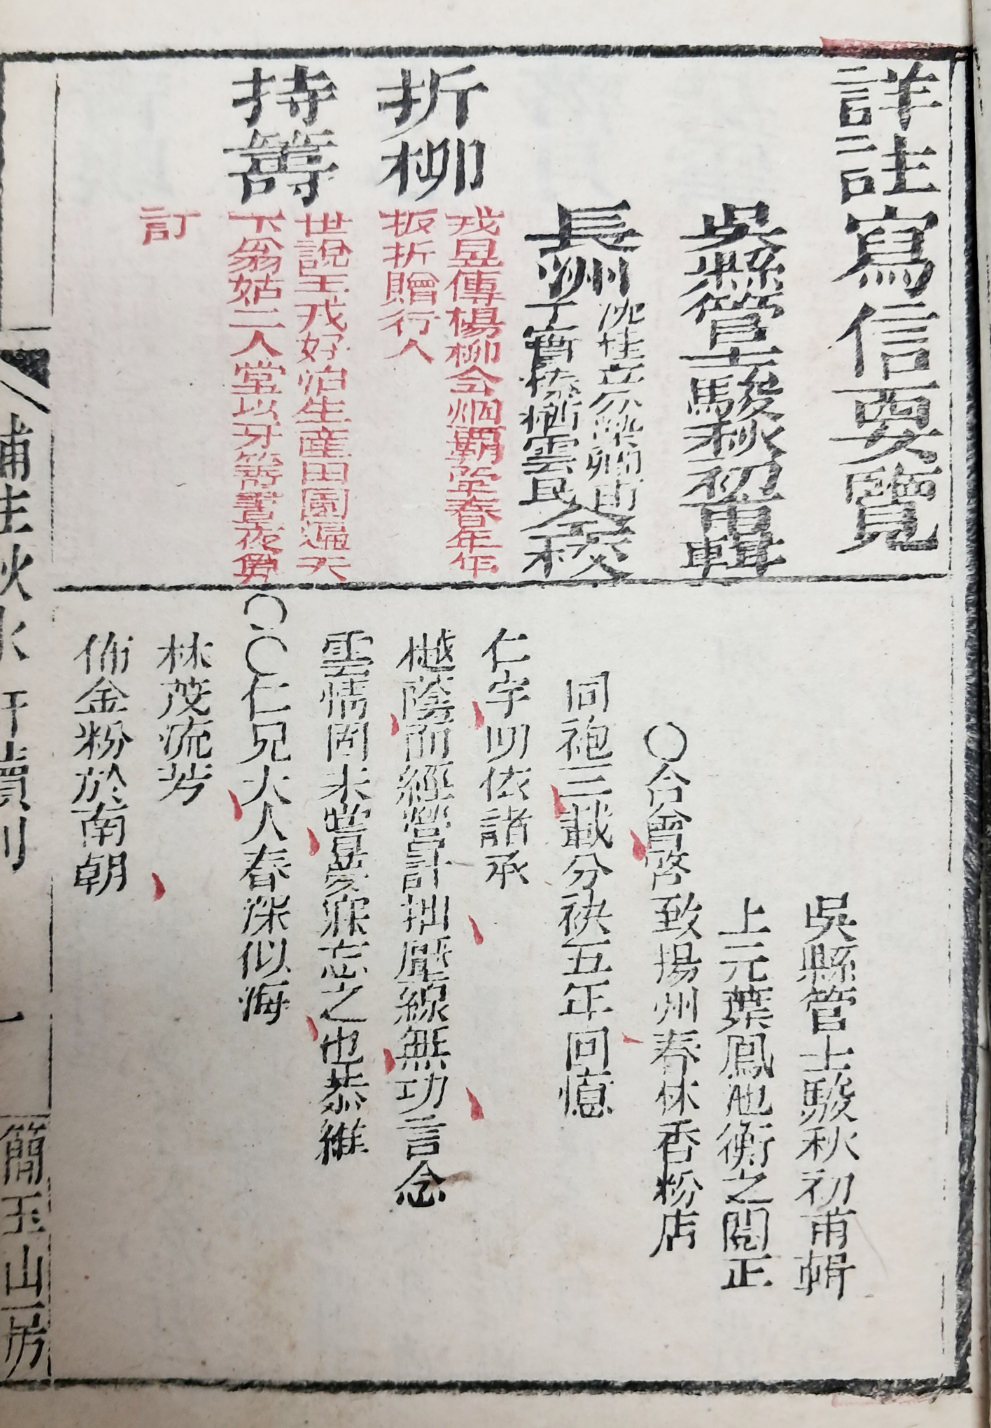 詳註寫信要覽
吳縣管士駿秋初甫輯
長洲
沈桂芬
雲民
仝校
折柳
戎昱傳楊柳含烟覇岸春年年
扳折贈行人
持籌
世說王戎好治生產田園遍天
下翁姑二人堂以牙籌晝夜算
訂
吳縣管士駿秋初甫輯
上元葉鳳池衡之閱正
〇合會啓致揚州春林香粉店
同袍三載分袂五年回憶
仁宇叨依諸承
樾蔭而經營計拙壓線無功言念
雲情固未嘗夢寐忘之也恭維
〇〇仁兄大人春深似海
林茂流芳
佈金粉於南朝
補註秋水軒牘刊
一
簡玉山房